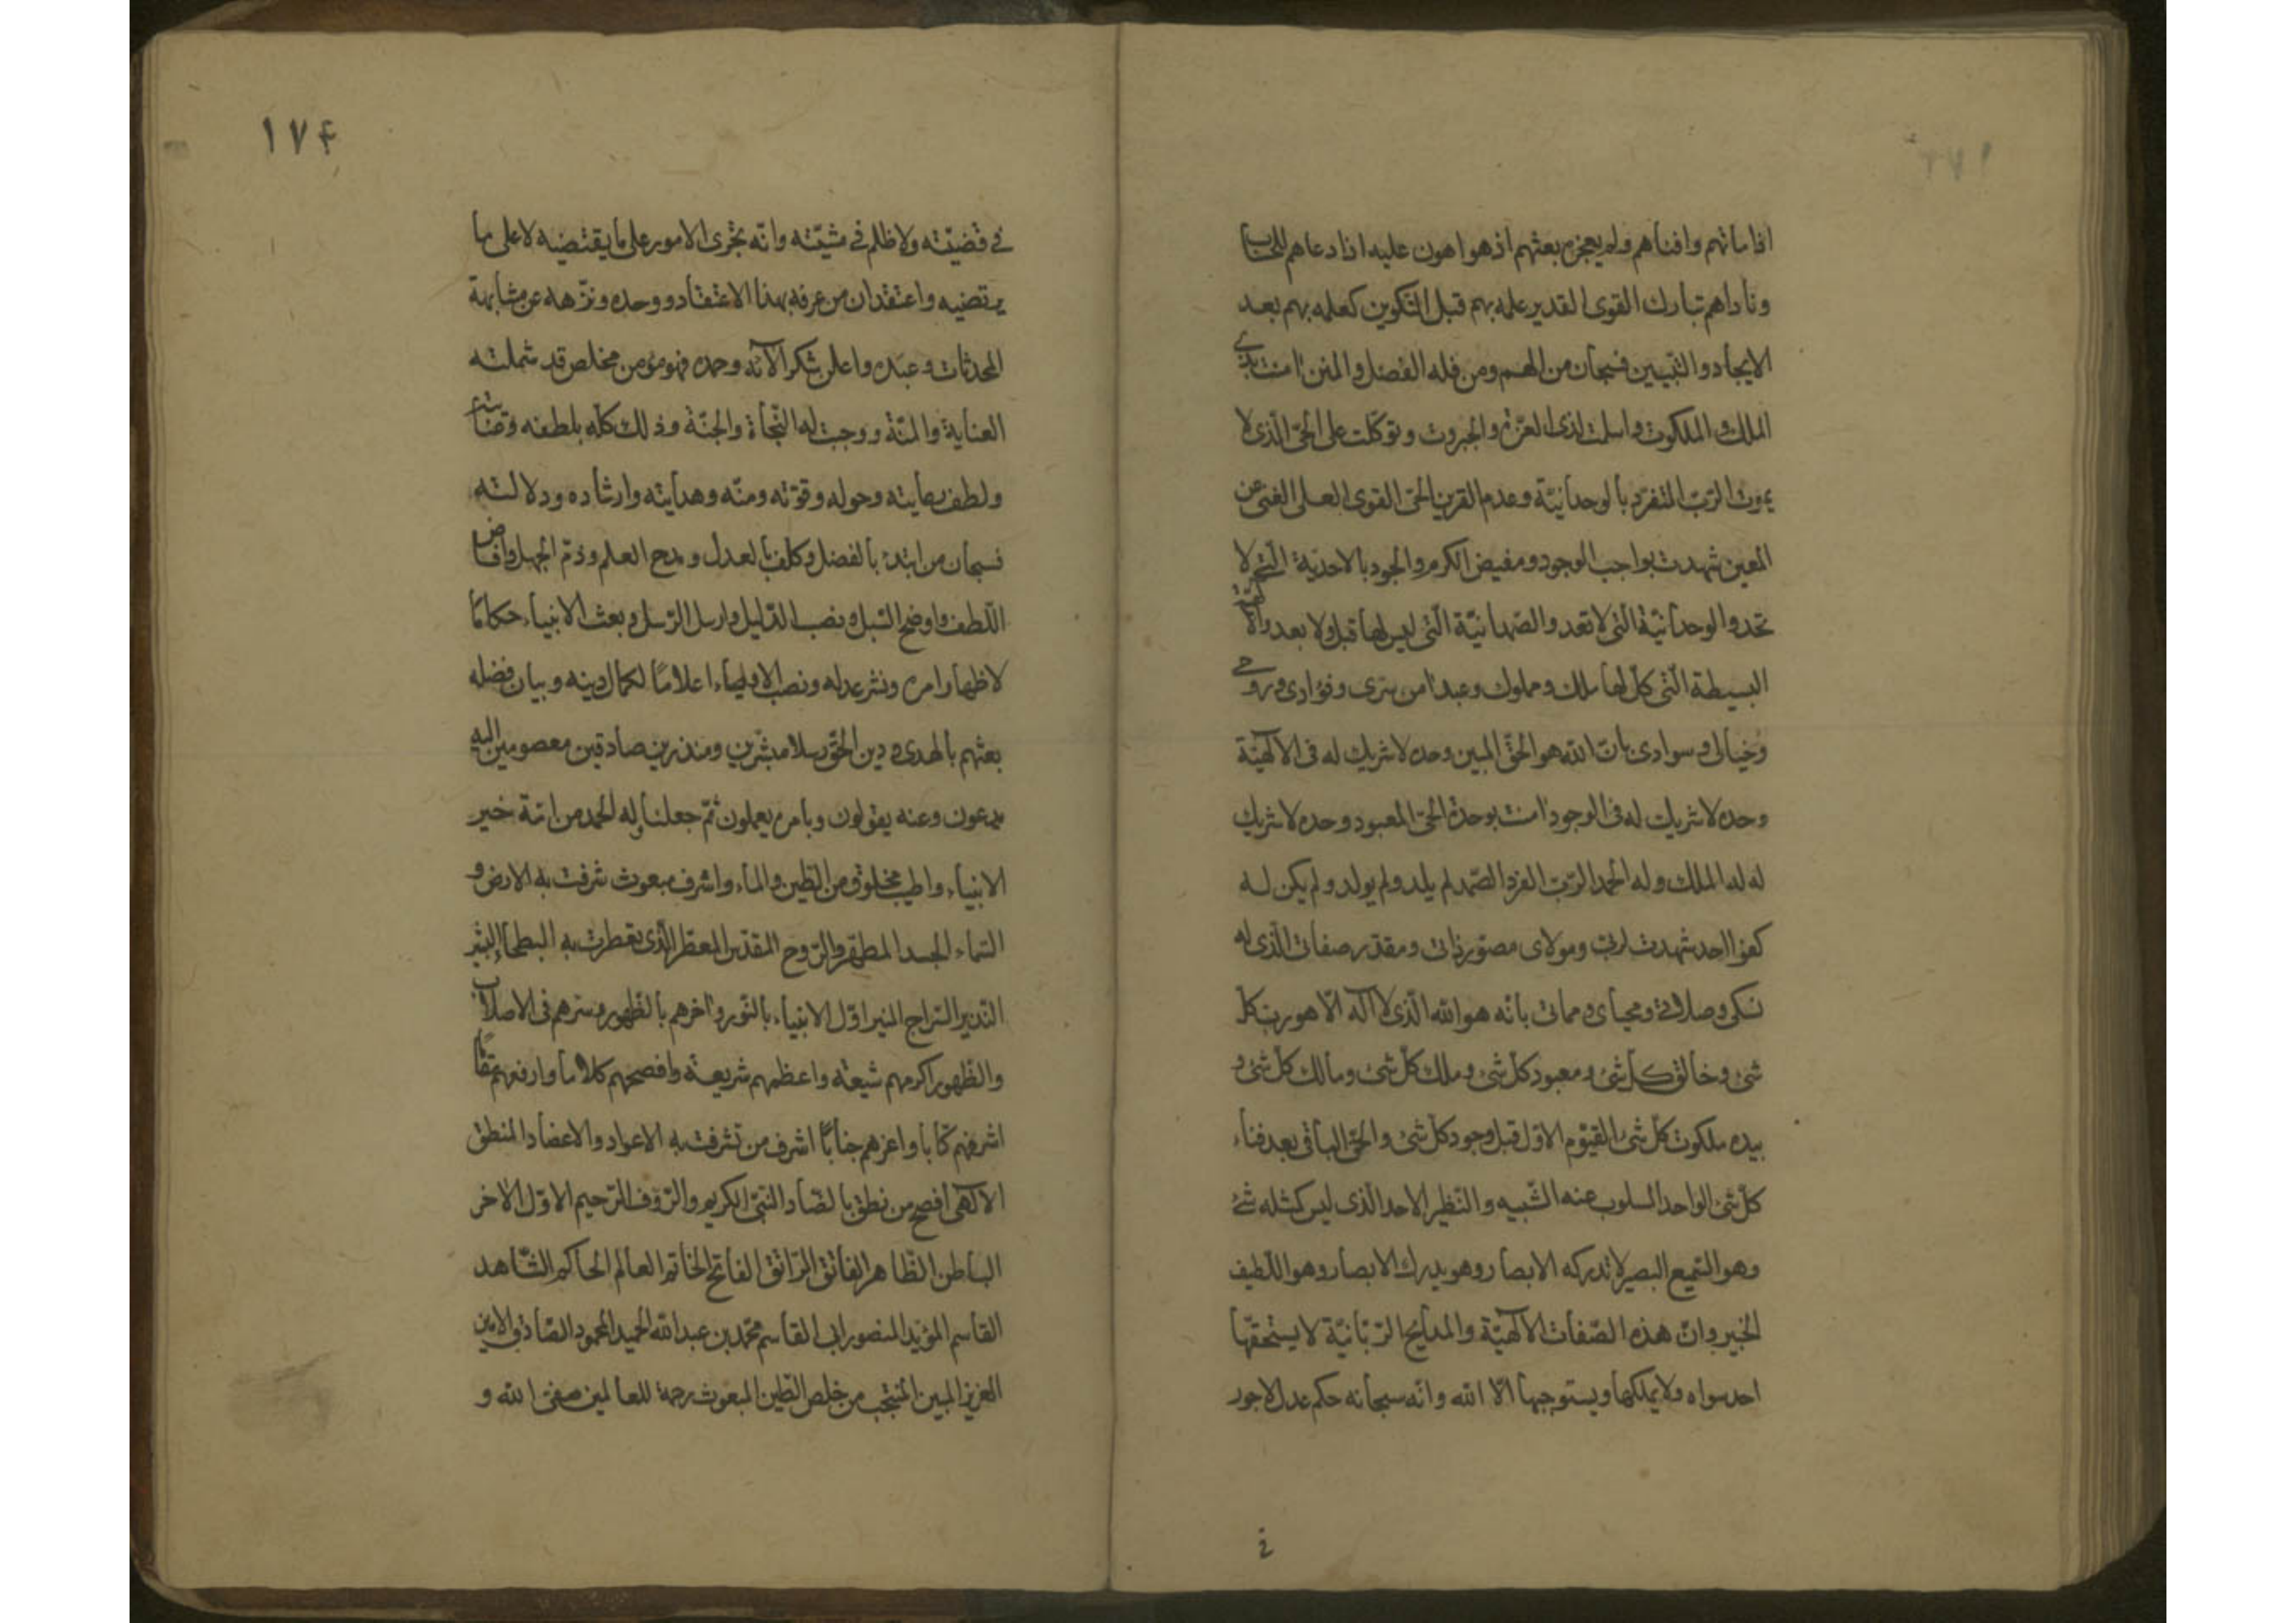 اذا ماتهم وافناهم ولم يعجزه بعثهم اذ هو اهون عليه اذا دعاهم للحساب
وناداهم تبارك القوى القدير علمه بهم قبل التكوين كعلمه بهم بعد
الايجاد والتبيين فسبحان من الهم ومن فله الفضل والمنن امنت بذى
الملك والملكوت واسلمت لذى العزّة والجبروت وتوكّلت على الحىّ الّذى لا
يموت الربّ المتفرّد بالوحدانيّة وعدم القرين الحىّ القوى العلى الغنى عن
المعين شهدت بواجب الوجود ومفيض الكرم والجود بالاحديّة الّتى لا
تحد والوحدانيّة الّتى لا تعد والصّمدانيّة الّتى ليس لها قبل ولا بعد والالهيّة
البسيطة الّتى كلّ لها ملك ومملوك وعبد امن سرى وفؤادى وروحى
وخيالى وسوادى بانّ الله هو الحقّ المبين وحده لا شريك له فى الالهيّة
وحده لا شريك له فى الوجود امنت بوحدة الحىّ المعبود وحده لا شريك
له له الملك وله الحمد الربّ الفرد الصّمد لم يلد ولم يولد ولم يكن له
كفوا احد شهدت لربى ومولاى مصوّر ذاتى ومقدّر صفاتى الّذى له
نسكى وصلاتى ومحياى ومماتى بانّه هو الله الّذى لا اله الّا هو ربّ كلّ
شئ وخالق كلّ شئ ومعبود كلّ شئ وملك كلّ شئ ومالك كلّ شئ و
بيده ملكوت كلّ شئ القيّوم الاوّل قبل وجود كلّ شئ والحىّ الباقى بعد فناء
كلّ شئ الواحد المسلوب عنه الشّبيه والنّظير الاحد الّذى ليس كمثله شئ
وهو السّميع البصير لا تدركه الابصار وهو يدرك الابصار وهو اللّطيف
الخبير وانّ هذه الصّفات الالهيّة والمدايح الربّانيّة لا يستحقّها
احد سواه ولا يملكها ويستوجبها الّا الله وانّه سبحانه حكم عدل لا جور
فى
١٧٤
فى قضيّته ولا ظلم فى مشيّته وانّه تجرى الامور على ما يقتضيه لا على ما
يرتضيه واعتقد ان من عرفه بهذا الاعتقاد ووحده ونزّهه عن مشابهة
المحدثات وعبده واعلن بشكر الآئه وحمده فهو مؤمن مخلص قد شملته
العناية والمنّة ووجبت له النّجاة والجنّة وذلك كلّه بلطفه
ولطف بعنايته وحوله وقوّته ومنّه وهدايته وارشاده ودلالته
فسبحان من ابتدء بالفضل وكلّف بالعدل ومدح العلم وذمّ الجهل وافاض
اللّطف واوضح السّبل ونصب الدّليل وارسل الرّسل وبعث الانبياء حكاما
لاظهار امره ونشر عدله ونصب الاوصياء اعلاما لكمال دينه وبيان فضله
بعثهم بالهدى ودين الحقّ رسلا مبشّرين ومنذرين صادقين معصومين اليه
يدعون وعنه يقولون وبامره يعملون ثمّ جعلنا وله الحمد من امّة خير
الانبياء واطيب مخلوق من الطّين والماء واشرف مبعوث شرفت به الارض و
السّماء الجسد المطهّر والرّوح المقدّس المعطّر الّذى تعطّرت به البطحاء البشير
النّذير السّراج المنير اوّل الانبياء بالنّور واخرهم بالظّهور وسرّهم فى الاصلاب
والظّهور اكرمهم شيعة واعظمهم شريعة وافصحهم كلاما وارفعهم مقاما
اشرفهم كتابا واعزهم جنابا اشرف من تشرفت به الاعواد والاعضاد المنطق
الالهى افصح من نطق بالضّاد النّبىّ الكريم والرّؤف الرّحيم الاوّل الاخر
الباطن الظّاهر الفائق الرّاتق الفاتح الخاتم العالم الحاكم الشّاهد
القاسم المؤيّد المنصور ابى القاسم محمّد بن عبد الله الحميد المحمود الصّادق الامين
العزيز المبين المنتجب من خلص الطّين المبعوث رحمة للعالمين صفى الله و